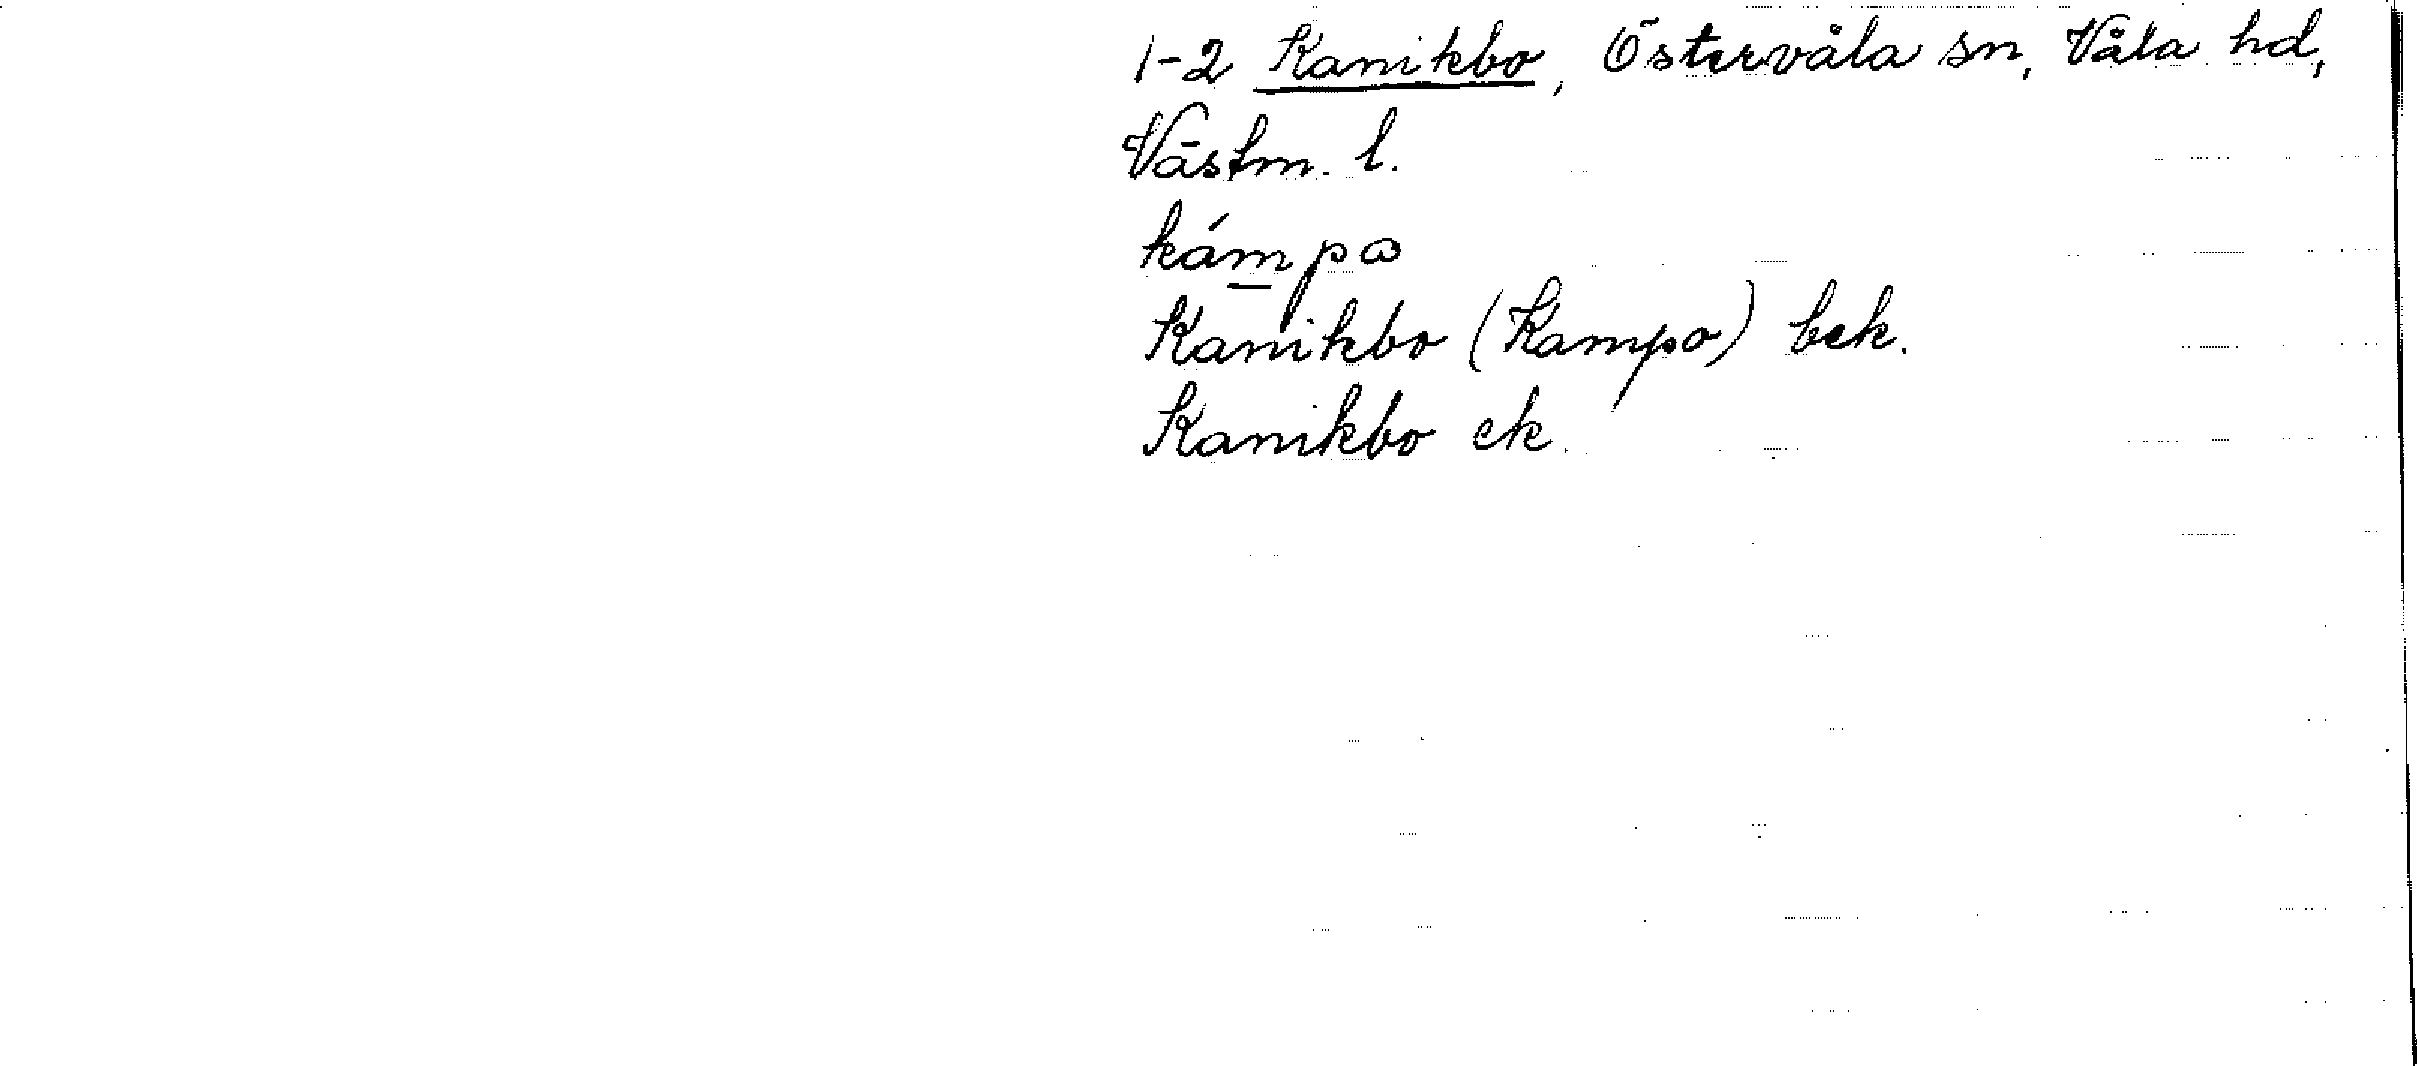 1-2 Kanikbo, Östervåla sn, Våla hd,
Västm. l.
kámpꙍ
Kanikbo (Kampo) bek.
Kanikbo ek.